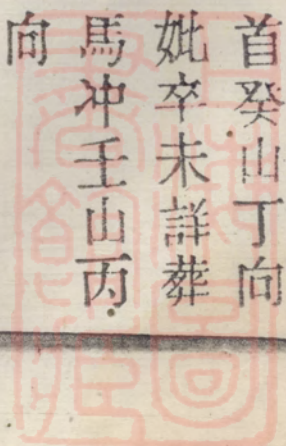 首癸山丁向
妣卒未詳葬
馬冲壬山丙
向